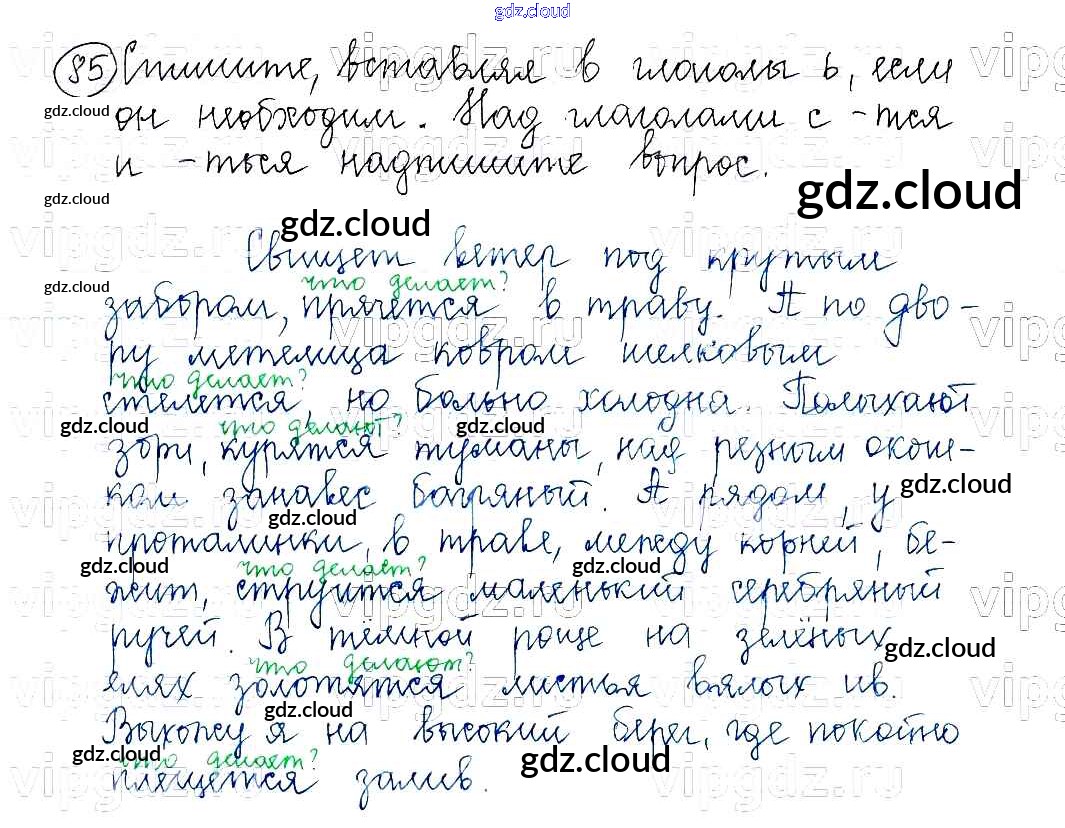 gdz.cloud
85 Спишите, вставляя в глаголы ь, если
он необходим. Над глаголами с -тся
и -ться надпишите вопрос.
gdz.cloud
gdz.cloud
gdz.cloud
gdz.cloud
Свищет ветер под крутым
gdz.cloud
что делает?
забором, прячется в траву. А по дво-
ру метелица ковром шелковым
что делает?
стелется, но больно холодна. Полыхают
gdz.cloud
что делают?
gdz.cloud
зори, курятся туманы, над резным окош-
ком занавес багряный. А рядом, у
gdz.cloud
gdz.cloud
проталинки, в траве, между корней, бе-
gdz.cloud
что делает?
gdz.cloud
жит, струится маленький серебряный
ручей. В тёмной роще на зелёных
gdz.cloud
что делают?
елях золотятся листья вялых ив.
gdz.cloud
Выхожу я на высокий берег, где покойно
gdz.cloud
что делает?
gdz.cloud
плещется залив.
vipgdz.ru